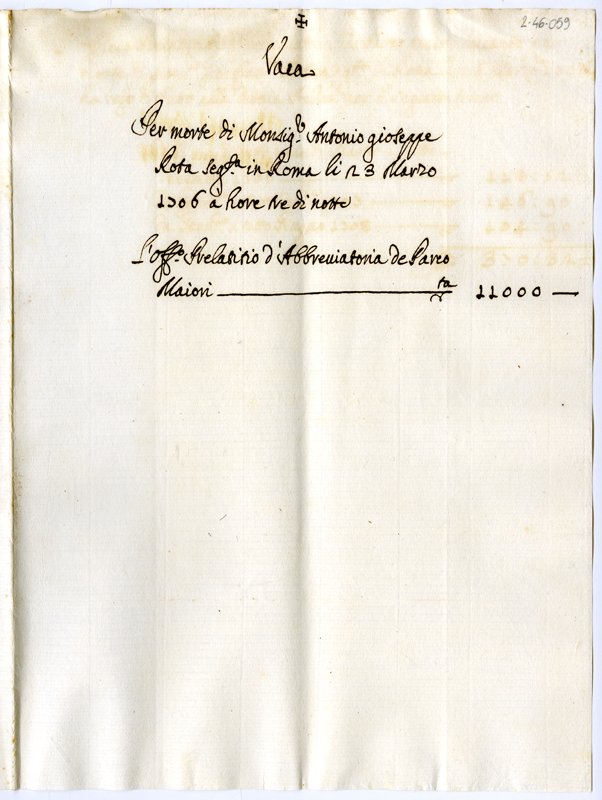 2-46-059
✠
Vaca
Per morte di Monsig.r Antonio gioseppe
Rota seg.ta in Roma li 23 Marzo
1706 a hore tre di notte
L'off.o Prelatitio d'Abbreviatoria de Parco
Maiori ta 11000 —